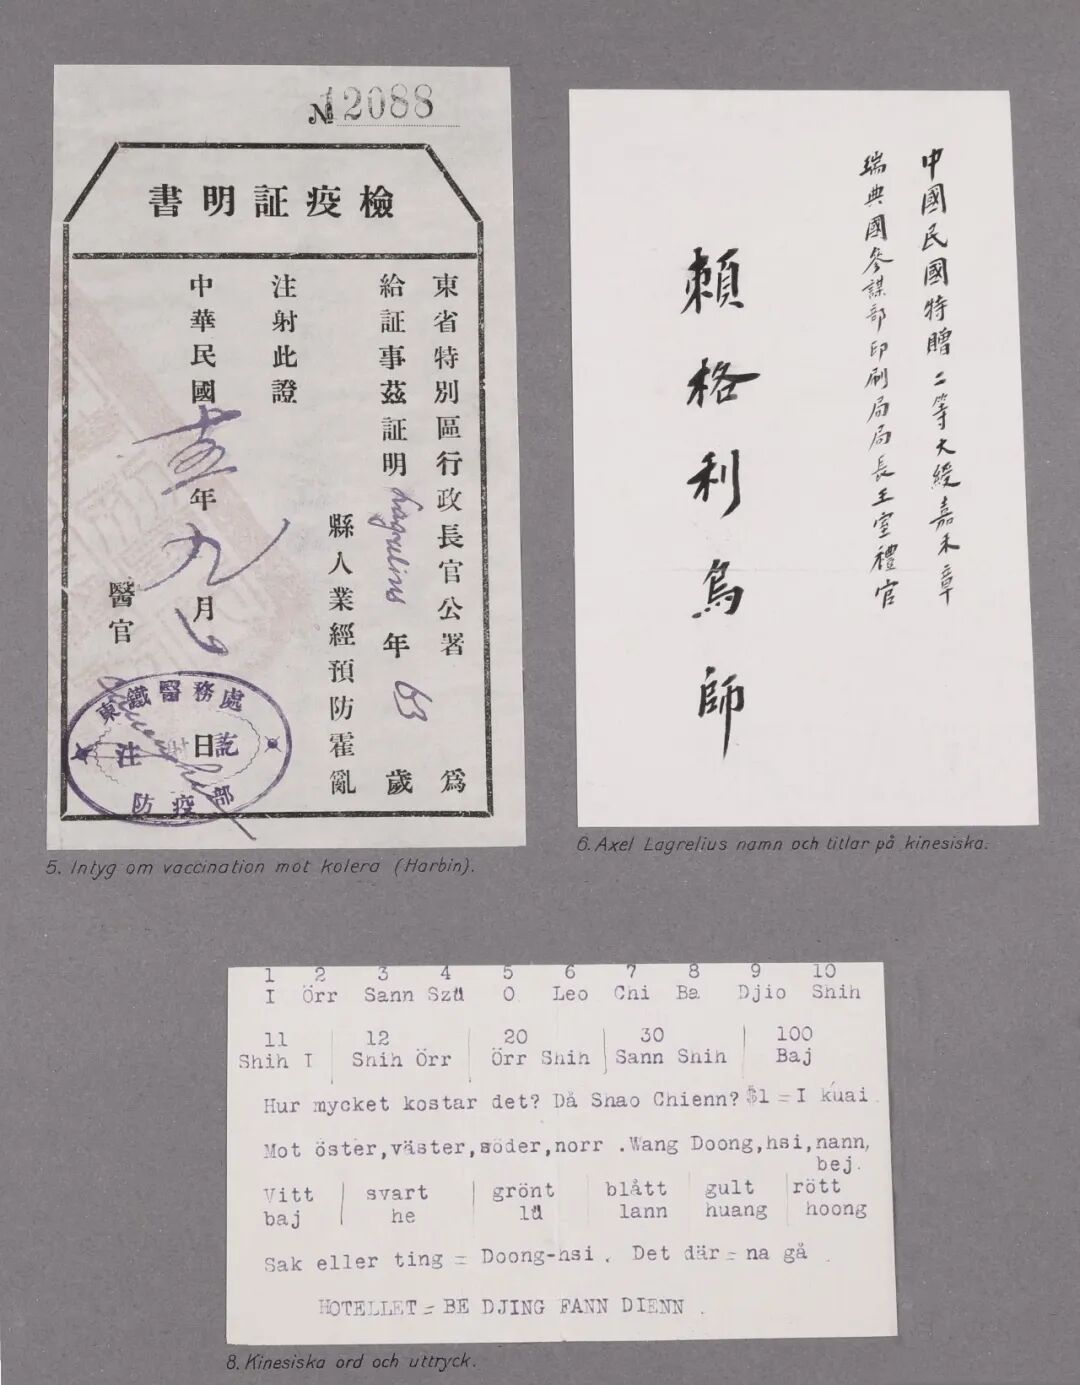 № 12088
書明証疫檢
東省特別區行政長官公署 爲
給証事茲証明 Lagrelius 年 63 歲
縣人業經預防霍亂
注射此證
中華民國 十五 年 九 月 日
醫官
東鐵醫務處
注射訖
防疫部
5. Intyg om vaccination mot kolera (Harbin).
中國民國特贈二等大綬嘉禾章
瑞典國參謀部印刷局局長王室禮官
賴格利烏師
6. Axel Lagrelius namn och titlar på kinesiska.
1 2 3 4 5 6 7 8 9 10
I Örr Sann Szü O Leo Chi Ba Djio Shih
11 12 20 30 100
Shih I Shih Örr Örr Shih Sann Shih Baj
Hur mycket kostar det? Då Shao Chienn? $1 = I kuai
Mot öster,väster,söder,norr .Wang Doong,hsi,nann,
bej.
Vitt svart grönt blått gult rött
baj he lü lann huang hoong
Sak eller ting = Doong-hsi . Det där= na gå
HOTELLET = BE DJING FANN DIENN .
8. Kinesiska ord och uttryck.